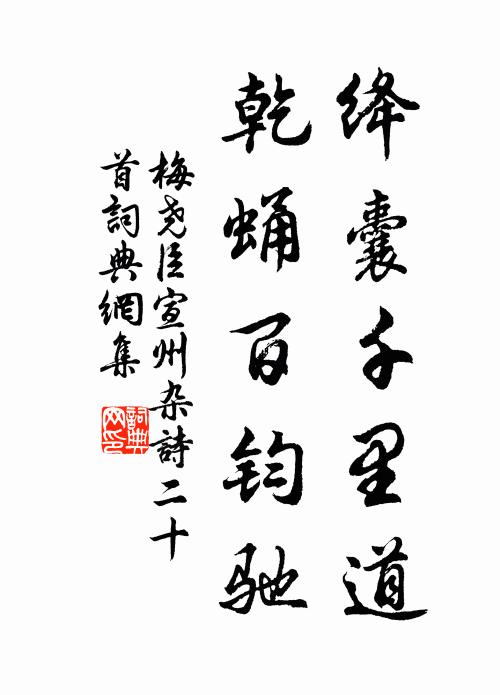 绛囊千里道
乾蛹百钧驰
梅尧臣宣州杂詩二十
首詞典網集
詞典
网印